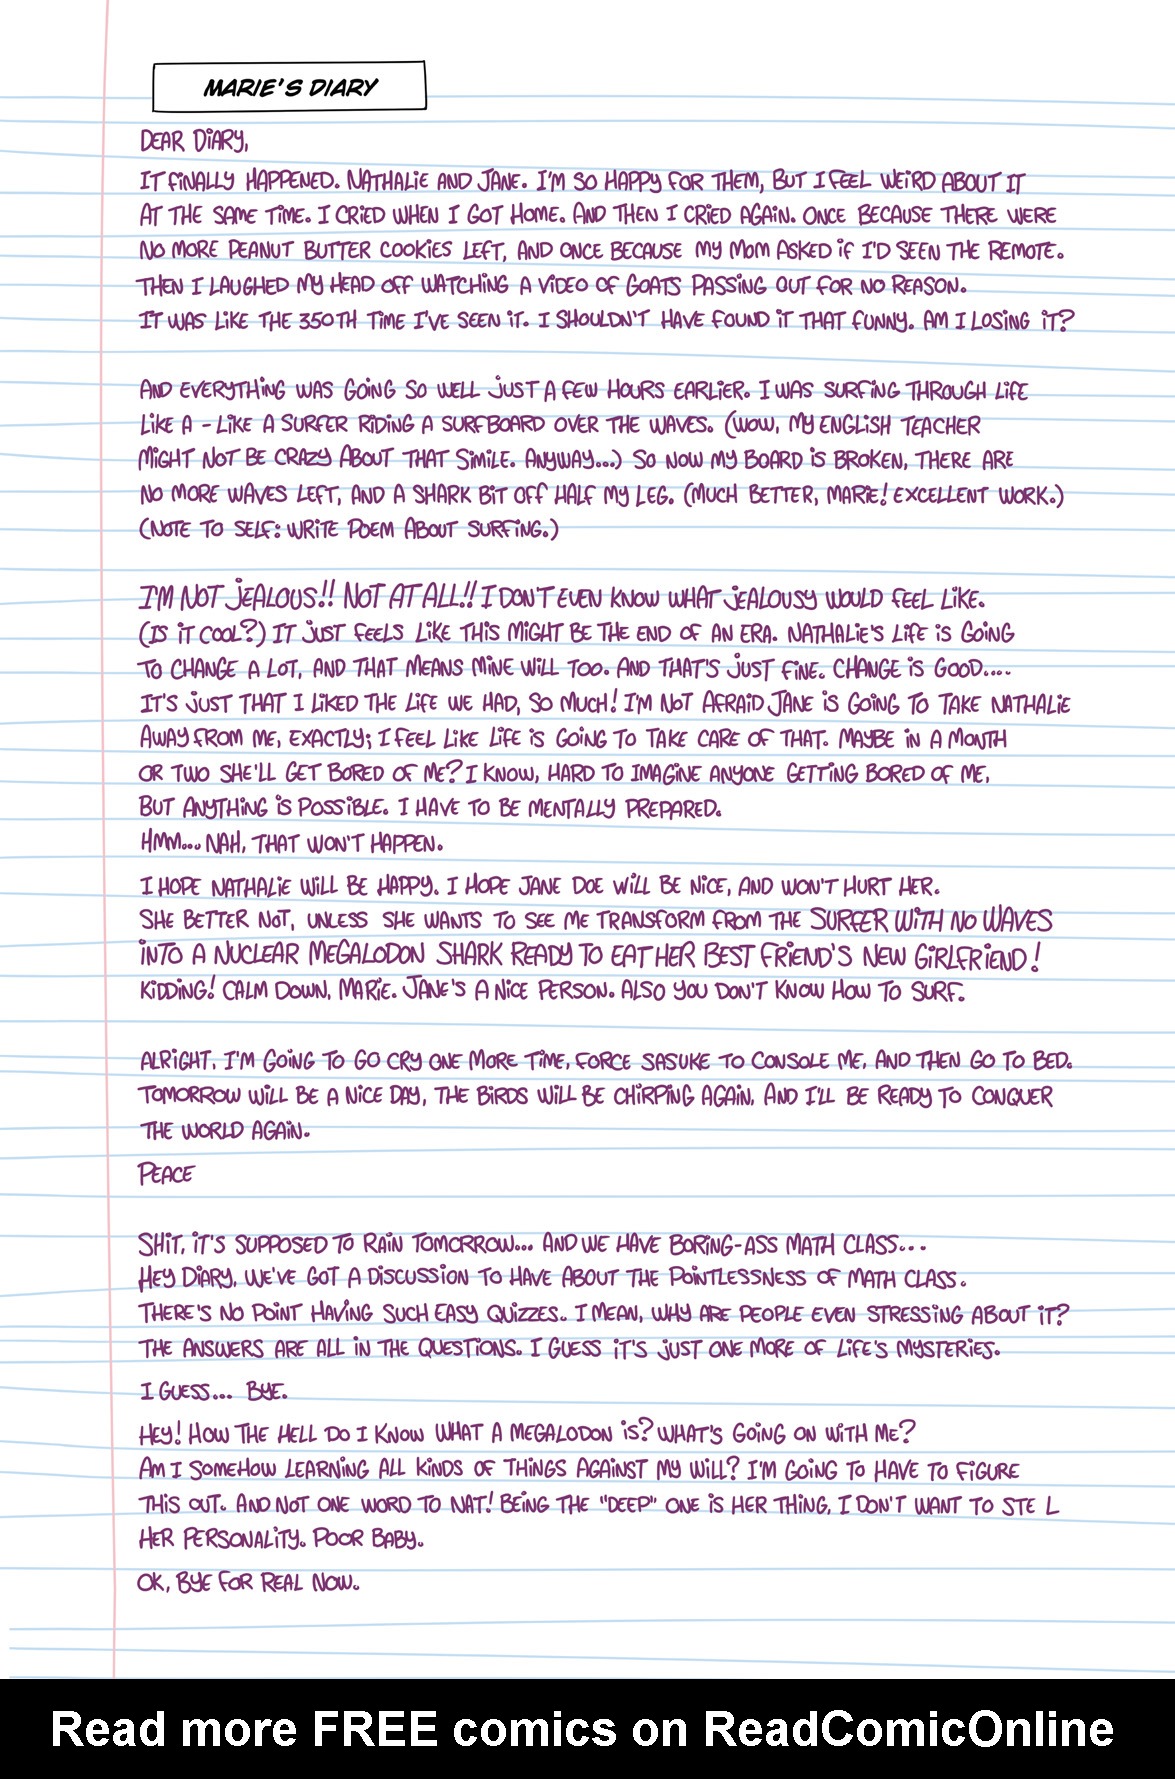 MARIE'S DIARY
DEAR DIARY,
IT FINALLY HAPPENED. NATHALIE AND JANE. I'M SO HAPPY FOR THEM, BUT I FEEL WEIRD ABOUT IT
AT THE SAME TIME. I CRIED WHEN I GOT HOME. AND THEN I CRIED AGAIN. ONCE BECAUSE THERE WERE
NO MORE PEANUT BUTTER COOKIES LEFT, AND ONCE BECAUSE MY MOM ASKED IF I'D SEEN THE REMOTE.
THEN I LAUGHED MY HEAD OFF WATCHING A VIDEO OF GOATS PASSING OUT FOR NO REASON.
IT WAS LIKE THE 350TH TIME I'VE SEEN IT. I SHOULDN'T HAVE FOUND IT THAT FUNNY. AM I LOSING IT?
AND EVERYTHING WAS GOING SO WELL JUST A FEW HOURS EARLIER. I WAS SURFING THROUGH LIFE
LIKE A - LIKE A SURFER RIDING A SURFBOARD OVER THE WAVES. (WOW, MY ENGLISH TEACHER
MIGHT NOT BE CRAZY ABOUT THAT SIMILE. ANYWAY...) SO NOW MY BOARD IS BROKEN, THERE ARE
NO MORE WAVES LEFT, AND A SHARK BIT OFF HALF MY LEG. (MUCH BETTER, MARIE! EXCELLENT WORK.)
(NOTE TO SELF: WRITE POEM ABOUT SURFING.)
I'M NOT JEALOUS!! NOT AT ALL!! I DON'T EVEN KNOW WHAT JEALOUSY WOULD FEEL LIKE.
(IS IT COOL?) IT JUST FEELS LIKE THIS MIGHT BE THE END OF AN ERA. NATHALIE'S LIFE IS GOING
TO CHANGE A LOT, AND THAT MEANS MINE WILL TOO. AND THAT'S JUST FINE. CHANGE IS GOOD....
IT'S JUST THAT I LIKED THE LIFE WE HAD, SO MUCH! I'M NOT AFRAID JANE IS GOING TO TAKE NATHALIE
AWAY FROM ME, EXACTLY; I FEEL LIKE LIFE IS GOING TO TAKE CARE OF THAT. MAYBE IN A MONTH
OR TWO SHE'LL GET BORED OF ME? I KNOW, HARD TO IMAGINE ANYONE GETTING BORED OF ME,
BUT ANYTHING IS POSSIBLE. I HAVE TO BE MENTALLY PREPARED.
HMM... NAH, THAT WON'T HAPPEN.
I HOPE NATHALIE WILL BE HAPPY. I HOPE JANE DOE WILL BE NICE, AND WON'T HURT HER.
SHE BETTER NOT, UNLESS SHE WANTS TO SEE ME TRANSFORM FROM THE SURFER WITH NO WAVES
INTO A NUCLEAR MEGALODON SHARK READY TO EAT HER BEST FRIEND'S NEW GIRLFRIEND!
KIDDING! CALM DOWN, MARIE. JANE'S A NICE PERSON. ALSO YOU DON'T KNOW HOW TO SURF.
ALRIGHT, I'M GOING TO GO CRY ONE MORE TIME, FORCE SASUKE TO CONSOLE ME, AND THEN GO TO BED.
TOMORROW WILL BE A NICE DAY, THE BIRDS WILL BE CHIRPING AGAIN, AND I'LL BE READY TO CONQUER
THE WORLD AGAIN.
PEACE
SHIT, IT'S SUPPOSED TO RAIN TOMORROW... AND WE HAVE BORING-ASS MATH CLASS...
HEY DIARY, WE'VE GOT A DISCUSSION TO HAVE ABOUT THE POINTLESSNESS OF MATH CLASS.
THERE'S NO POINT HAVING SUCH EASY QUIZZES. I MEAN, WHY ARE PEOPLE EVEN STRESSING ABOUT IT?
THE ANSWERS ARE ALL IN THE QUESTIONS. I GUESS IT'S JUST ONE MORE OF LIFE'S MYSTERIES.
I GUESS... BYE.
HEY! HOW THE HELL DO I KNOW WHAT A MEGALODON IS? WHAT'S GOING ON WITH ME?
AM I SOMEHOW LEARNING ALL KINDS OF THINGS AGAINST MY WILL? I'M GOING TO HAVE TO FIGURE
THIS OUT. AND NOT ONE WORD TO NAT! BEING THE "DEEP" ONE IS HER THING, I DON'T WANT TO STE L
HER PERSONALITY. POOR BABY.
OK, BYE FOR REAL NOW.
Read more FREE comics on ReadComicOnline